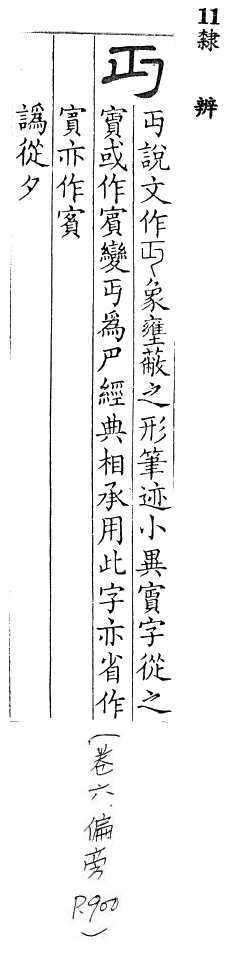 11 隸辨
丏
丏說文作丏象壅蔽之形筆迹小異賓字從之
賓或作賔變丏爲尸經典相承用此字亦省作
賔亦作賓
譌從夕
(卷六.偏旁 P.900)